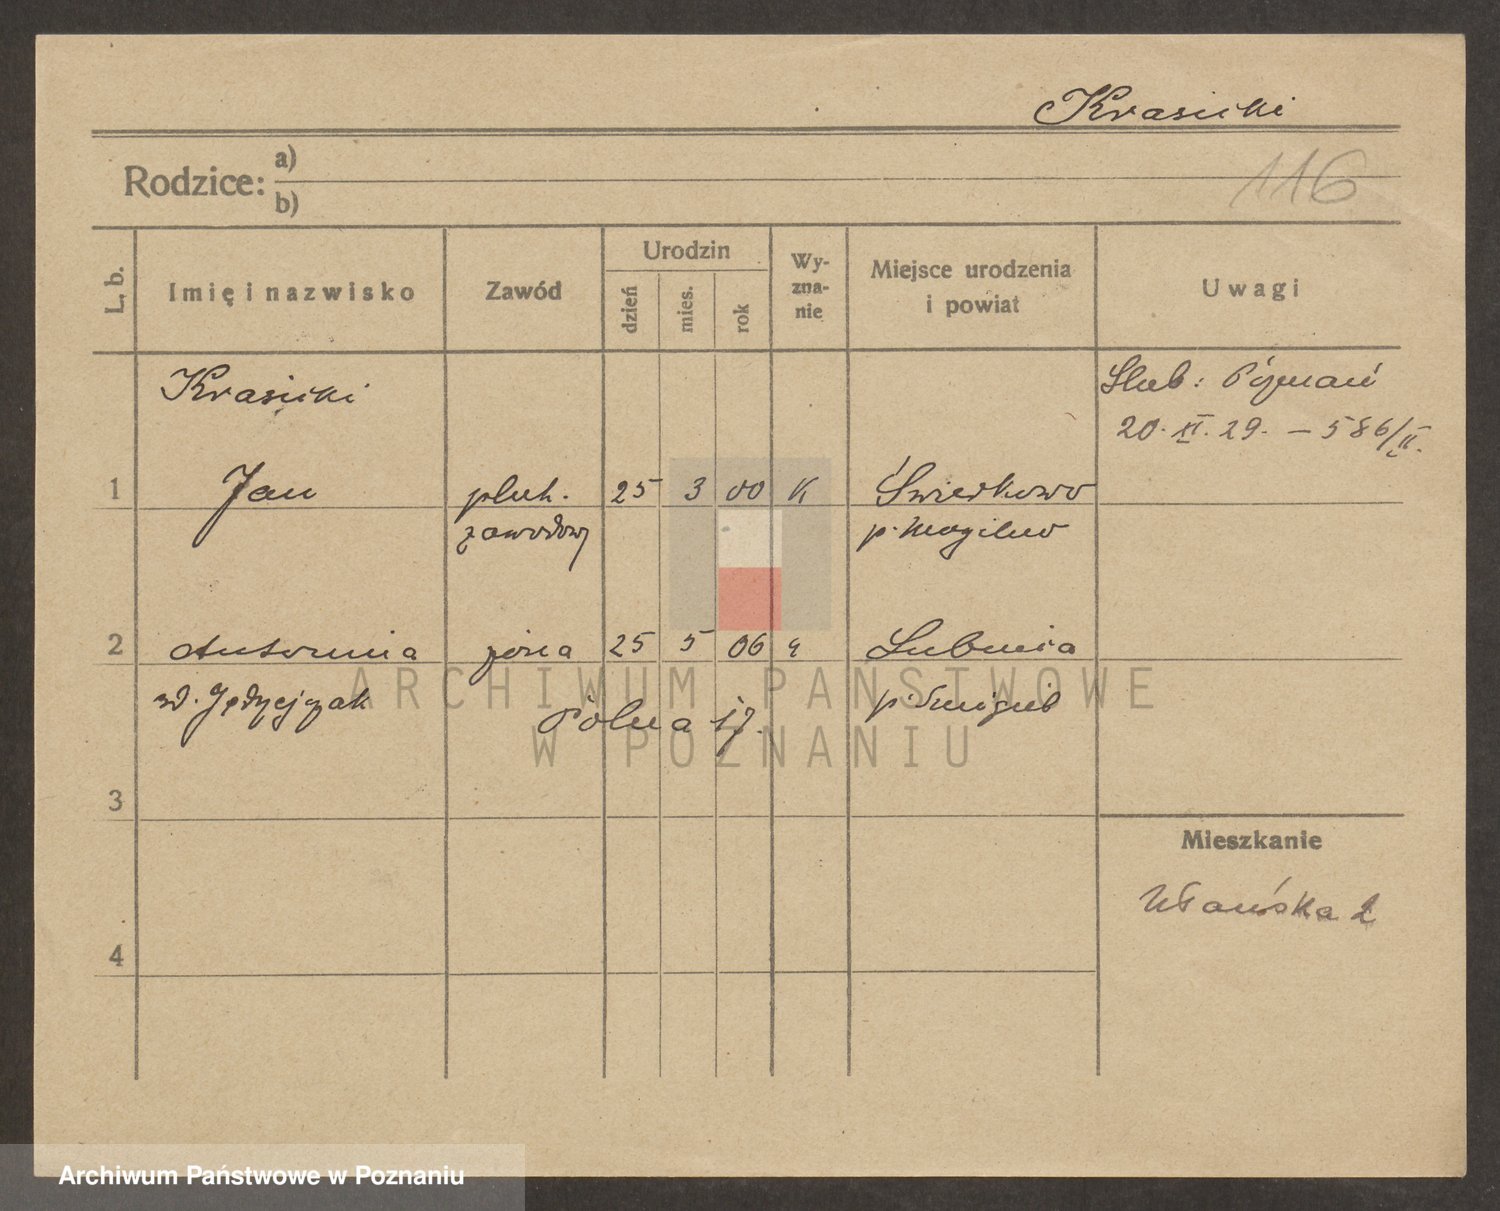 Krasicki
Rodzice: a)
b)
116
L. b. Imię i nazwisko Zawód Urodzin dzień mies. rok Wy-zna-nie Miejsce urodzenia i powiat Uwagi
Krasicki
Ślub: Poznań
20. XI. 29. — 586/II.
1 Jan pluh. 25 3 00 K Świerkowo
zawodowy p. Mogilno
2 Antonina żona 25 5 06 "
zd. Jędrzejczak
Polna 17.
3
Mieszkanie
Ułańska 2
4
ARCHIWUM PAŃSTWOWE
W POZNANIU
Archiwum Państwowe w Poznaniu